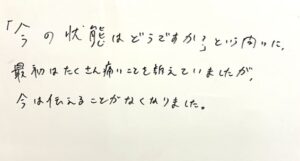 「今の状態はどうですか?」という問いに、
最初はたくさん痛いことを訴えていましたが、
今は伝えることがなくなりました。